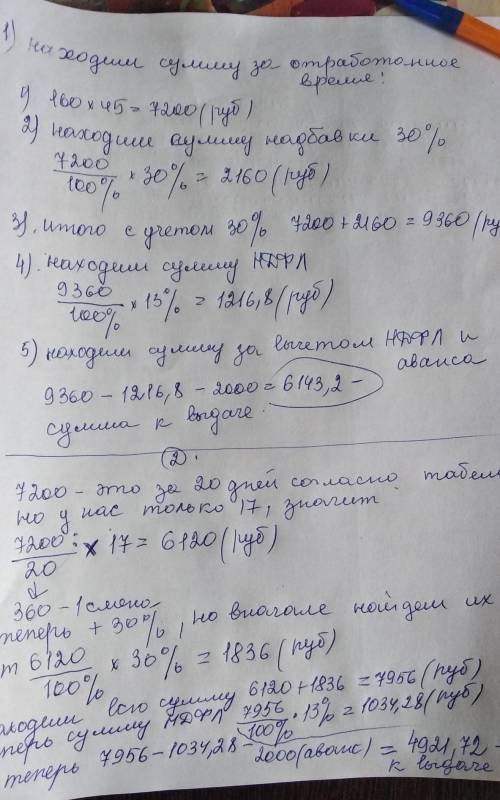 1) находим сумму за отработанное
время:
1) 160 × 45 = 7200 (руб)
2) находим сумму надбавки 30%
7200/100% × 30% = 2160 (руб)
3). итого с учетом 30% 7200 + 2160 = 9360 (ру
4). находим сумму НДФЛ
9360/100% × 13% = 1216,8 (руб)
5) находим сумму за вычетом НДФЛ и
аванса
9360 - 1216,8 - 2000 = 6143,2 -
сумма к выдаче.
2.
7200 - это за 20 дней согласно табел
но у нас только 17, значит:
7200/20 × 17 = 6120 (руб)
360 - 1 смена
теперь + 30%, но вначале найдем их
т 6120/100% × 30% = 1836 (руб)
аходим всю сумму 6120 + 1836 = 7956 (руб)
перь сумму НДФЛ 7956/100% · 13% = 1034,28 (руб)
теперь 7956 - 1034,28 - 2000 (аванс) = 4921,72 -
к выдаче